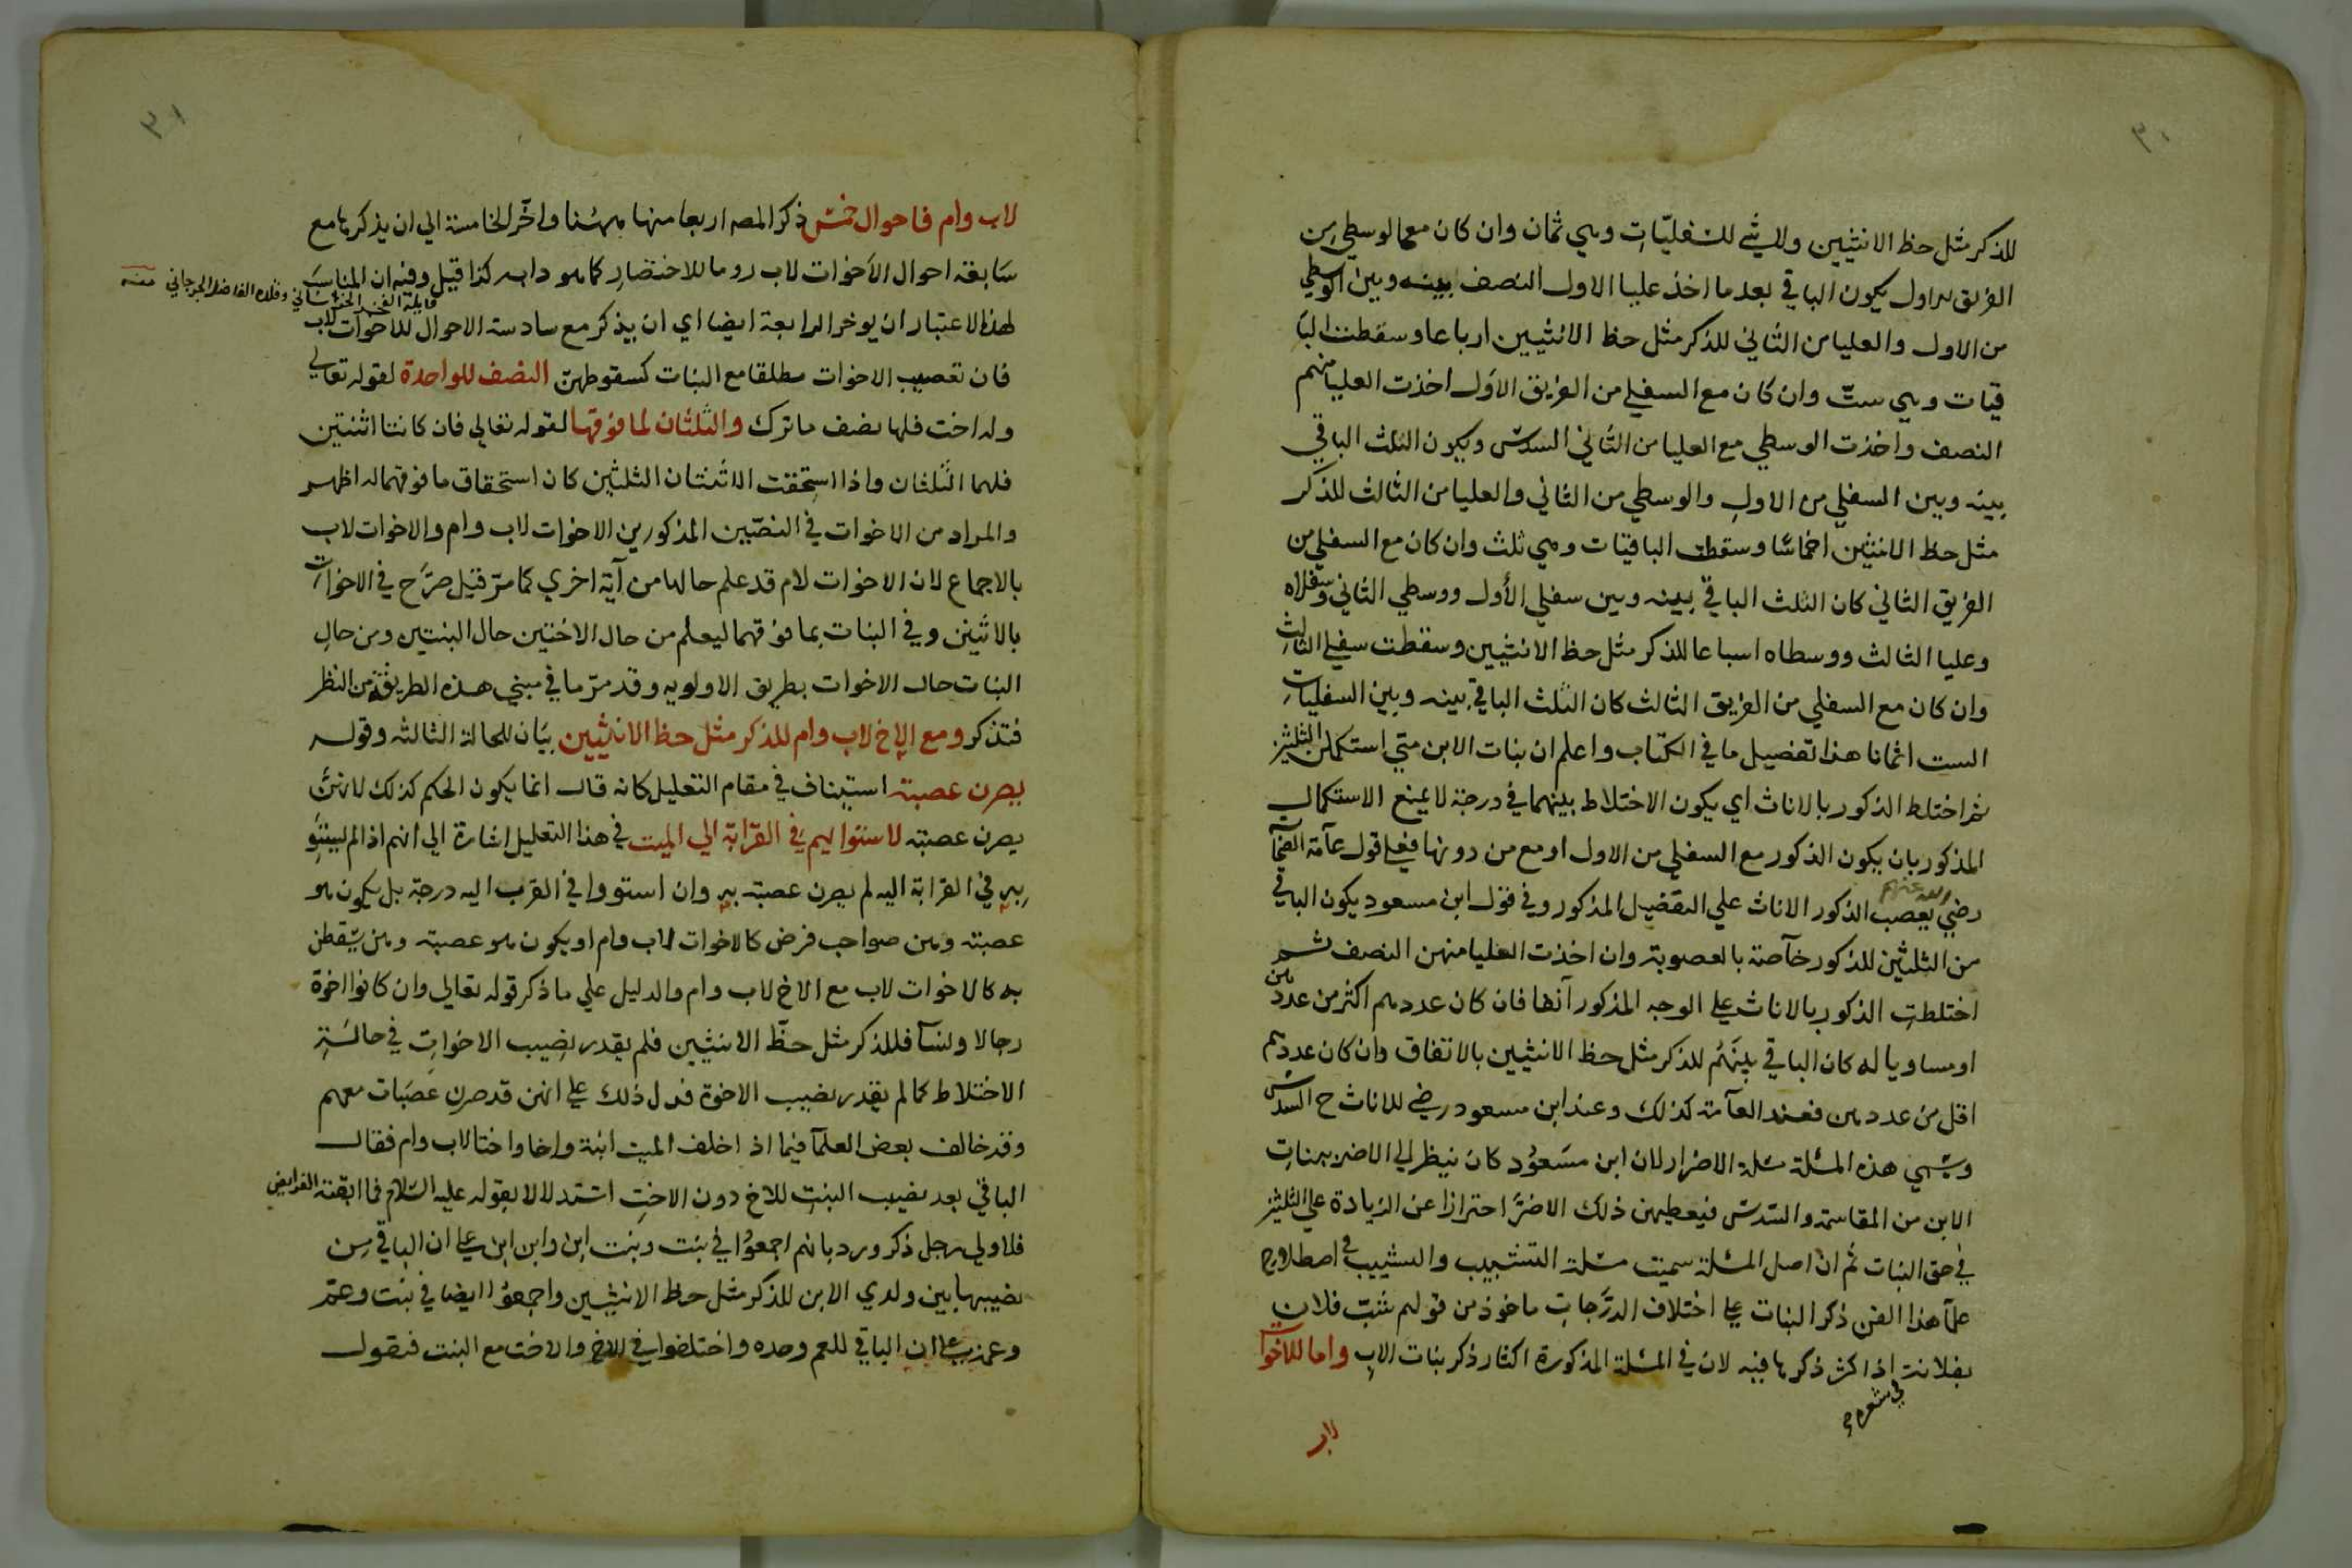 ٣٠
للذكر مثل حظ الانثيين ولا شئ للسفليّات وهي ثمان وان كان مع الوسطي من
الفريق الاول يكون الباقي بعد ما اخذ عليا الاول النصف بينه وبين الوسطي
من الاول والعليا من الثاني للذكر مثل حظ الانثيين ارباعا وسقطت البا
قيات وهي ستّ وان كان مع السفلي من الفريق الاول اخذت العليا منهم
النصف واخذت الوسطي مع العليا من الثاني السدس ويكون الثلث الباقي
بينه وبين السفلي من الاول والوسطي من الثاني والعليا من الثالث للذكر
مثل حظ الانثيين اخماسًا وسقطت الباقيات وهي ثلث وان كان مع السفلي من
الفريق الثاني كان الثلث الباقي بينه وبين سفلي الأول ووسطي الثاني وسفلاه
وعليا الثالث ووسطاه اسباعا للذكر مثل حظ الانثيين وسقطت سفلي الثالث
وان كان مع السفلي من الفريق الثالث كان الثلث الباقي بينه وبين السفليات
الست اثمانا هذا تفصيل ما في الكتاب واعلم ان بنات الابن متي استكملن الثلثين
ثم اختلط الذكور بالاناث اي يكون الاختلاط بينهما في درجة لا يمنع الاستكمال
المذكور بان يكون الذكور مع السفلي من الاول او مع من دونها فعلي قول عامّة الصحا
رضي الله عنهم يعصب الذكور الاناث علي التفصيل المذكور وفي قول ابن مسعود يكون الباقي
من الثلثين للذكور خآصة بالعصوبة وان اخذت العليا منهن النصف ثم
اختلطت الذكور بالاناث علي الوجه المذكور آنفا فان كان عددهم اكثر من عددهن
او مساويا له كان الباقي بينَهُم للذكر مثل حظ الانثيين بالاتفاق وان كان عددهم
اقل من عددهن فعند العآمة كذلك وعند ابن مسعود رضي للاناث ح السدس
وسمي هذه المسئلة مسئلة الاضرار لان ابن مسَعوُد كان ينظر الي الاضر ببنات
الابن من المقاسمة والسّدس فيعطيهن ذلك الاضرَّ احترازا عن الزيادة علي الثلثين
في حق البنات ثم انّ اصل المسئلة سميت مسئلة التشبيب والتشبيب في اصطلاح
علمآ هذا الفن ذكر البنات علي اختلاف الدرَّجات ماخوذ من قولهم شبّب فلان
بفلانة اذا اكثر ذكرها فيه لان في المسئلة المذكورة اكثار ذكر بنات الابن واما للاخوا
في شعره
لاب
٣١
لاب وام فاحوال خمس ذكر المصه اربعا منها ههنا واخّر الخامسة الي ان يذكرها مع
سَابعة احوال الاَخوات لاب روما للاختصار كما هو دابه كذا قيل وفيه ان المناسَبَ
لهذا الاعتبار ان يوخر الرابعة ايضا اي ان يذكر مع سادسة الاحوال للاخوات لاب
فان تعصيب الاخوات مطلقا مع البنات كسقوطهنّ النصف للواحدة لقوله تعالي
وله اخت فلها نصف ما ترك والثلثان لما فوقها لقوله تعالي فان كانتا اثنتين
فلهما الثلثان واذا استحقت الاثنتان الثلثين كان استحقاق ما فوقهما له اظهر
والمراد من الاخوات في النصّين المذكورين الاخوات لاب وام والاخوات لاب
بالاجماع لان الاخوات لام قد علم حالها من آية اخري كما مرّ قيل صرَّح في الاخوات
بالاثنين وفي البنات بما فوقهما ليعلم من حال الاختين حال البنتين ومن حال
البنات حال الاخوات بطريق الاولويه وقد مرّ ما في مبني هذه الطريقة من النظر
فتذكر ومع الاخ لاب وام للذكر مثل حظ الانثيين بيَان للحالة الثالثه وقوله
يصرن عصبة استيناف في مقام التعليل كانه قال انما يكون الحكم كذلك لانهنّ
يصرن عصبة لاستوائهم في القرّابة الي الميت في هذا التعليل اشارة الي انهم اذا لم يستوُ
به في القرابة اليه لم يصرن عصبة به وان استووا في القرب اليه درجة بل يكون هو
عصبة وهن صواحب فرض كالاخوات لاب وام او يكون هو عصبة وهن يسَقطن
به كالاخوات لاب مع الاخ لاب وام والدليل علي ما ذكر قوله تعالي وان كانوا اخوة
رجالا ونسآ فللذكر مثل حظّ الانثيين فلم يقدر نصيب الاخوات في حالة
الاختلاط كما لم يقدر نصيب الاخوة فدل ذلك علي انهن قد صرن عَصَبات معهم
وقد خالف بعض العلمآ فيما اذا خلف الميت ابنة واخا واختا لاب وام فقال
الباقي بعد نصيب البنت للاخ دون الاخت استدلالا بقوله عليه السّلام فما ابقته الفرايض
فلاولي رجل ذكر ورد بانهم اجمعوُا في بنت وبنت ابن وابن ابن علي ان الباقي من
نصيبها بين ولدي الابن للذكر مثل حظ الانثيين واجمعوُا ايضا في بنت وعمّ
وعمة علي ان الباقي للعم وحده واختلفوا في الاخ والاخت مع البنت فنقول